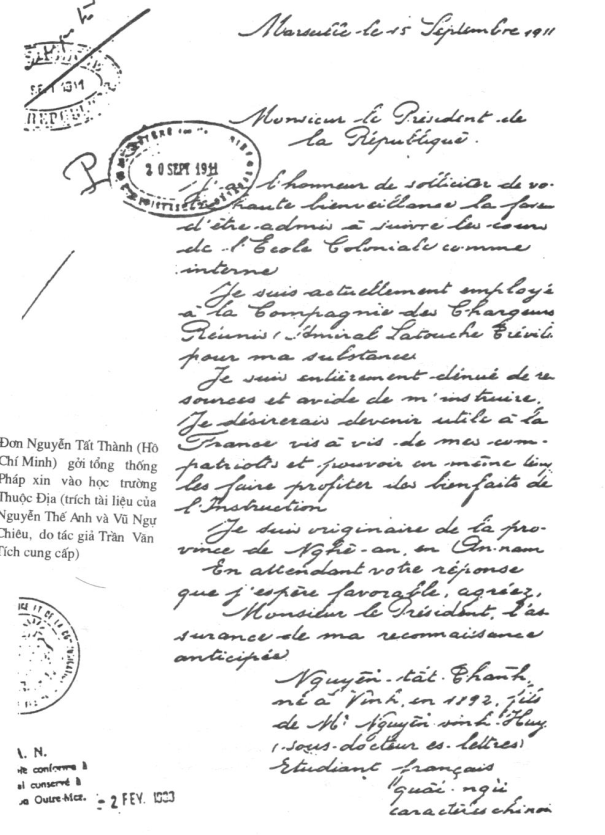 Marseille le 15 Septembre 1911
SEPT 1911
REPUB
Monsieur le Président de
la République.
20 SEPT 1911
l'honneur de solliciter de vo-
tre haute bienveillance la faveu
d'être admis à suivre les cours
de l'Ecole Coloniale comme
interne
Je suis actuellement employé
à la Compagnie des Chargeurs
Réunis (Amiral Latouche Trévill
pour ma substance
Je suis entièrement dénué de re
sources et avide de m'instruire.
Je désirerais devenir utile à la
France vis à vis de mes com-
patriotes et pouvoir en même tem
les faire profiter des bienfaits de
l'Instruction
Je suis originaire de la pro-
vince de Nghê-an, en An-nam
En attendant votre réponse
que j'espère favorable, agréez,
Monsieur le Président, l'as
surance de ma reconnaissance
anticipée
Nguyễn-tât-Thanh,
né à Vinh, en 1892, fils
de Mr Nguyễn sinh Huy
(sous-docteur ès-lettres)
Etudiant français
quâi-ngũ
caractères chinoi
Đơn Nguyễn Tất Thành (Hồ
Chí Minh) gởi tổng thống
Pháp xin vào học trường
Thuộc Địa (trích tài liệu của
Nguyễn Thế Anh và Vũ Ngự
Chiêu, do tác giả Trần Văn
Tích cung cấp)
A. N.
conforme à
conservé à
Outre-Mer.
- 2 FEV. 1983